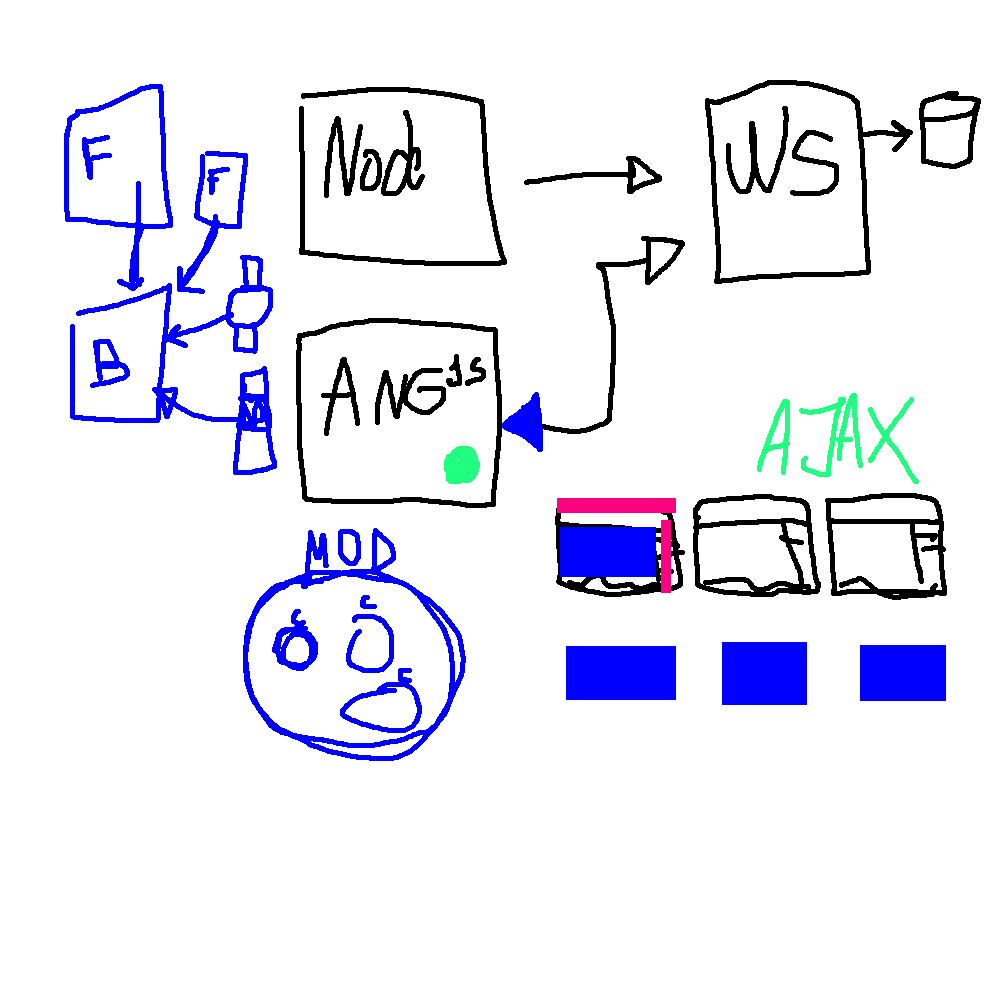 F
F
Node
WS
B
ANG JS
AJAX
MOD
C
C